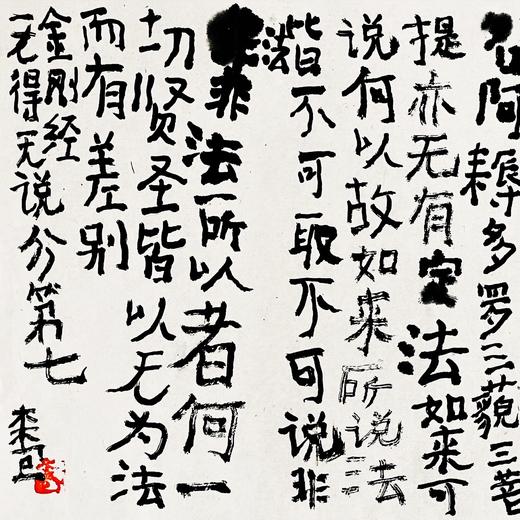 名阿耨多罗三藐三菩
提亦无有定法如来可
说何以故如来所说法
皆不可取不可说非
法
非法所以者何一
切贤圣皆以无为法
而有差别
金刚经
无得无说分第七